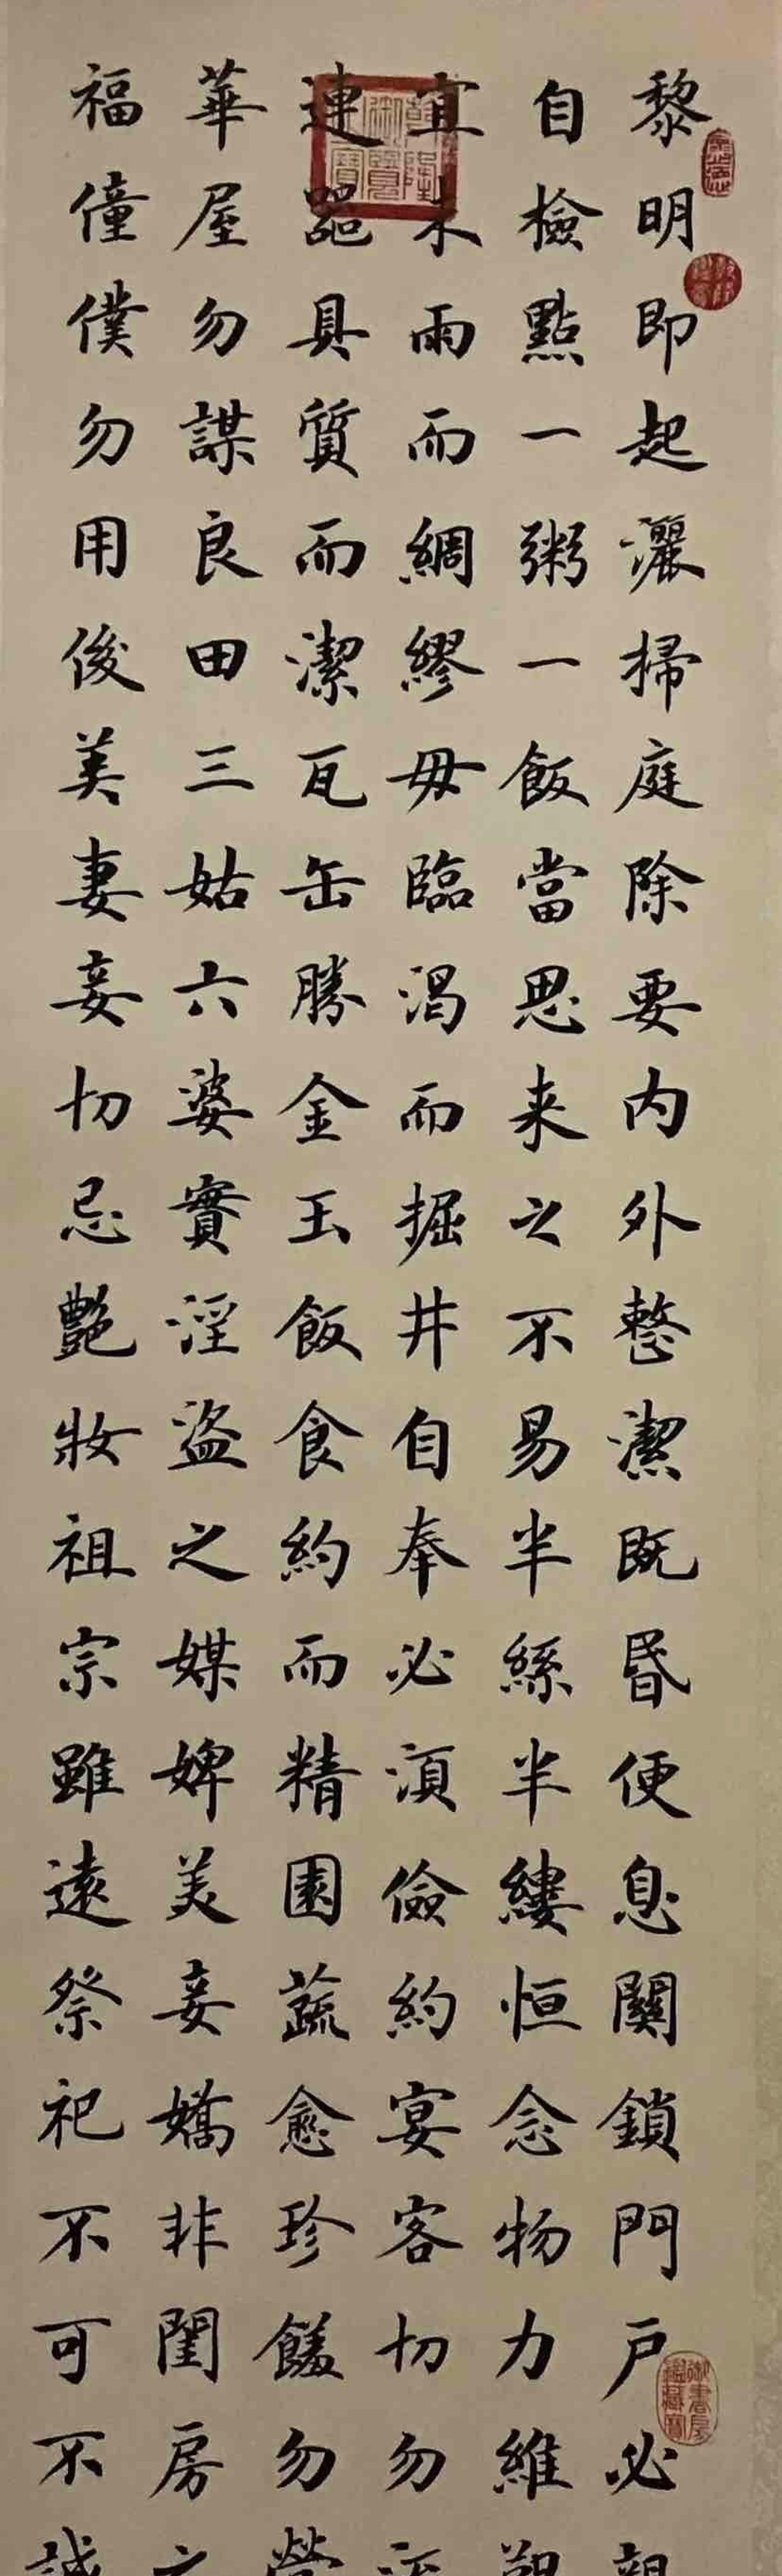 黎明即起灑掃庭除要内外整潔既昏便息關鎖門户必親
自檢點一粥一飯當思来之不易半絲半縷恒念物力維艱
宜未雨而綢繆毋臨渴而掘井自奉必須儉約宴客切勿流
連器具質而潔瓦缶勝金玉飯食約而精園蔬愈珍饈勿營
華屋勿謀良田三姑六婆實淫盜之媒婢美妾嬌非閨房之
福僮僕勿用俊美妻妾切忌艷妝祖宗雖遠祭祀不可不誠
乾隆御覽之寶
御書房鑑藏寶